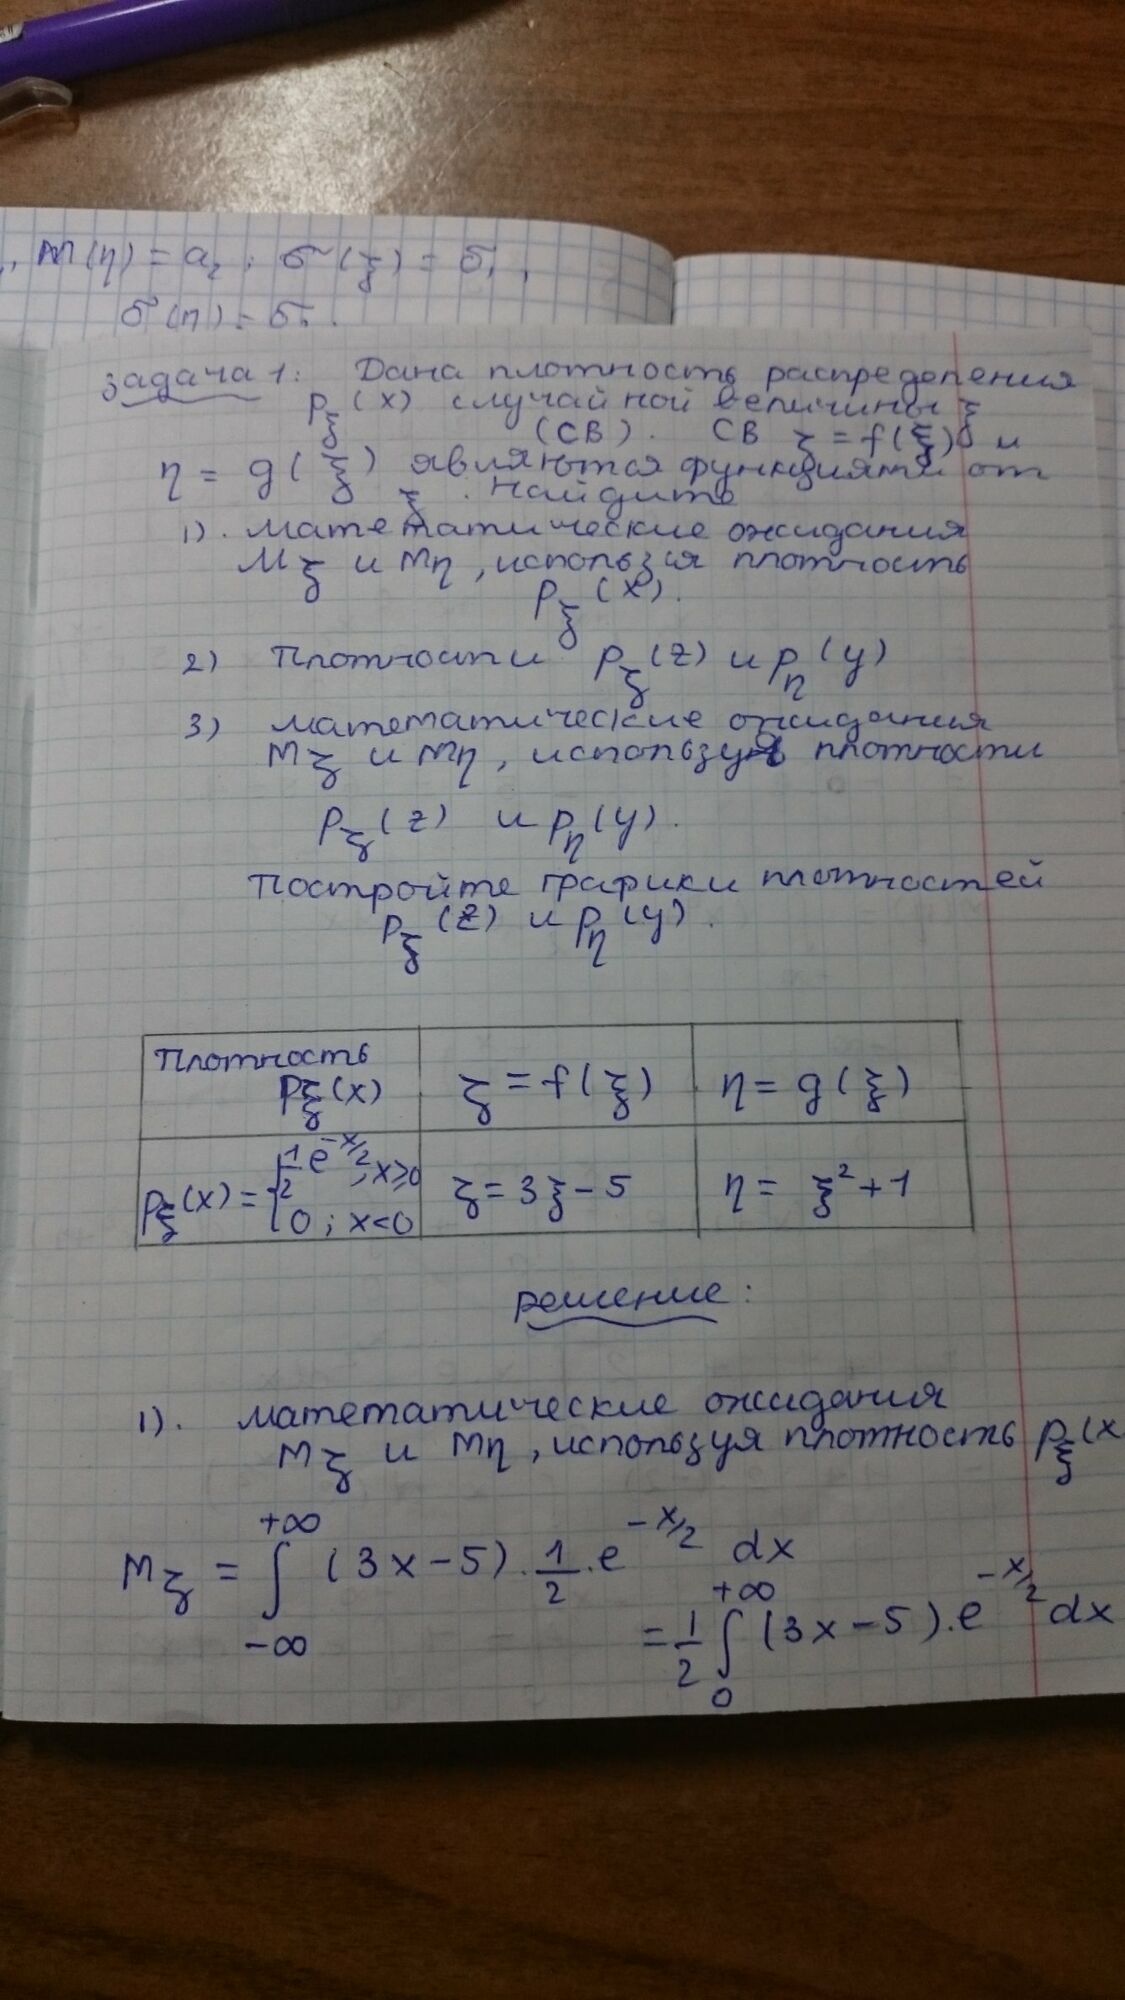 , M(η) = a₂ ; σ(ξ) = σ₁ ,
σ(η) = σ₂.
Задача 1: Дана плотность распределения
p_ξ(x) случайной величины ξ
(СВ). СВ ζ = f(ξ) и
η = g(ξ) являются функциями от
ξ. Найдите
1). Математические ожидания
Mζ и Mη, используя плотность
p_ξ(x).
2) Плотности p_ζ(z) и p_η(y)
3) Математические ожидания
Mζ и Mη, используя плотности
p_ζ(z) и p_η(y).
Постройте графики плотностей
p_ζ(z) и p_η(y).
Плотность
p_ξ(x)
ζ = f(ξ)
η = g(ξ)
p_ξ(x) = { 1/2 e^(-x/2), x≥0
0 ; x<0
ζ = 3ξ - 5
η = ξ² + 1
Решение:
1). Математические ожидания
Mζ и Mη, используя плотность p_ξ(x
Mζ = ∫_{-∞}^{+∞} (3x-5) · 1/2 · e^(-x/2) dx
= 1/2 ∫_0^{+∞} (3x-5) · e^(-x/2) dx